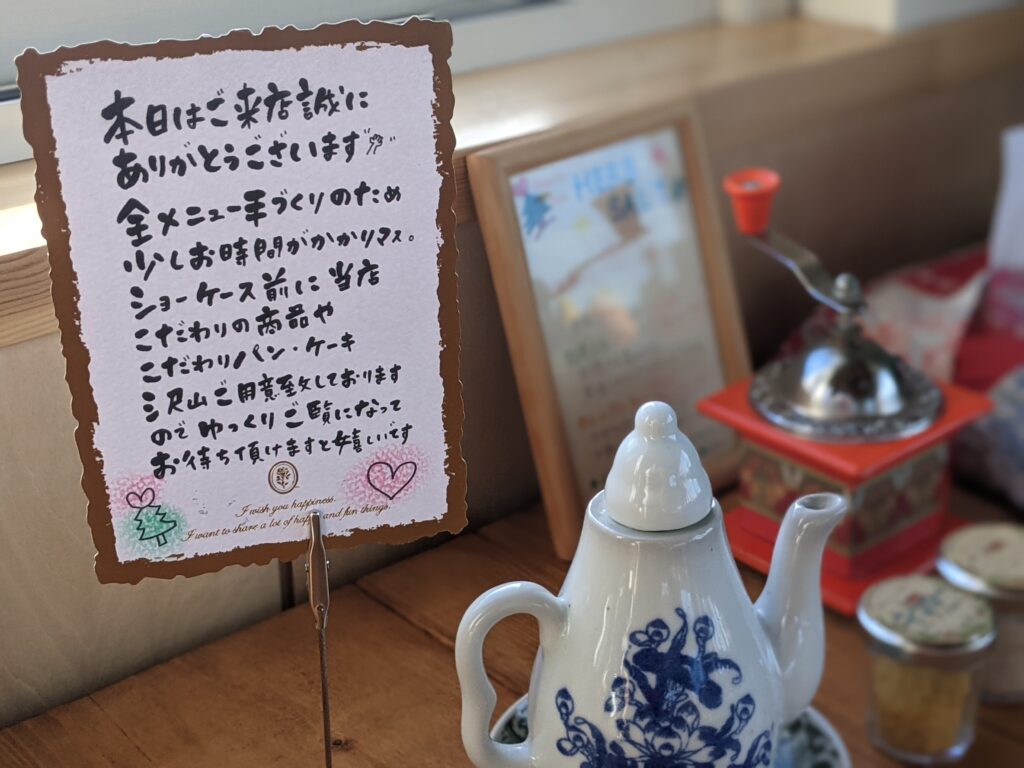 本日はご来店誠に
ありがとうございます
全メニュー手づくりのため
少しお時間がかかりマス。
ショーケース前に当店
こだわりの商品や
こだわりパン・ケーキ
沢山ご用意致しております
ので ゆっくりご覧になって
お待ち頂けますと嬉しいです
I wish you happiness.
I want to share a lot of and fun things.
HERB